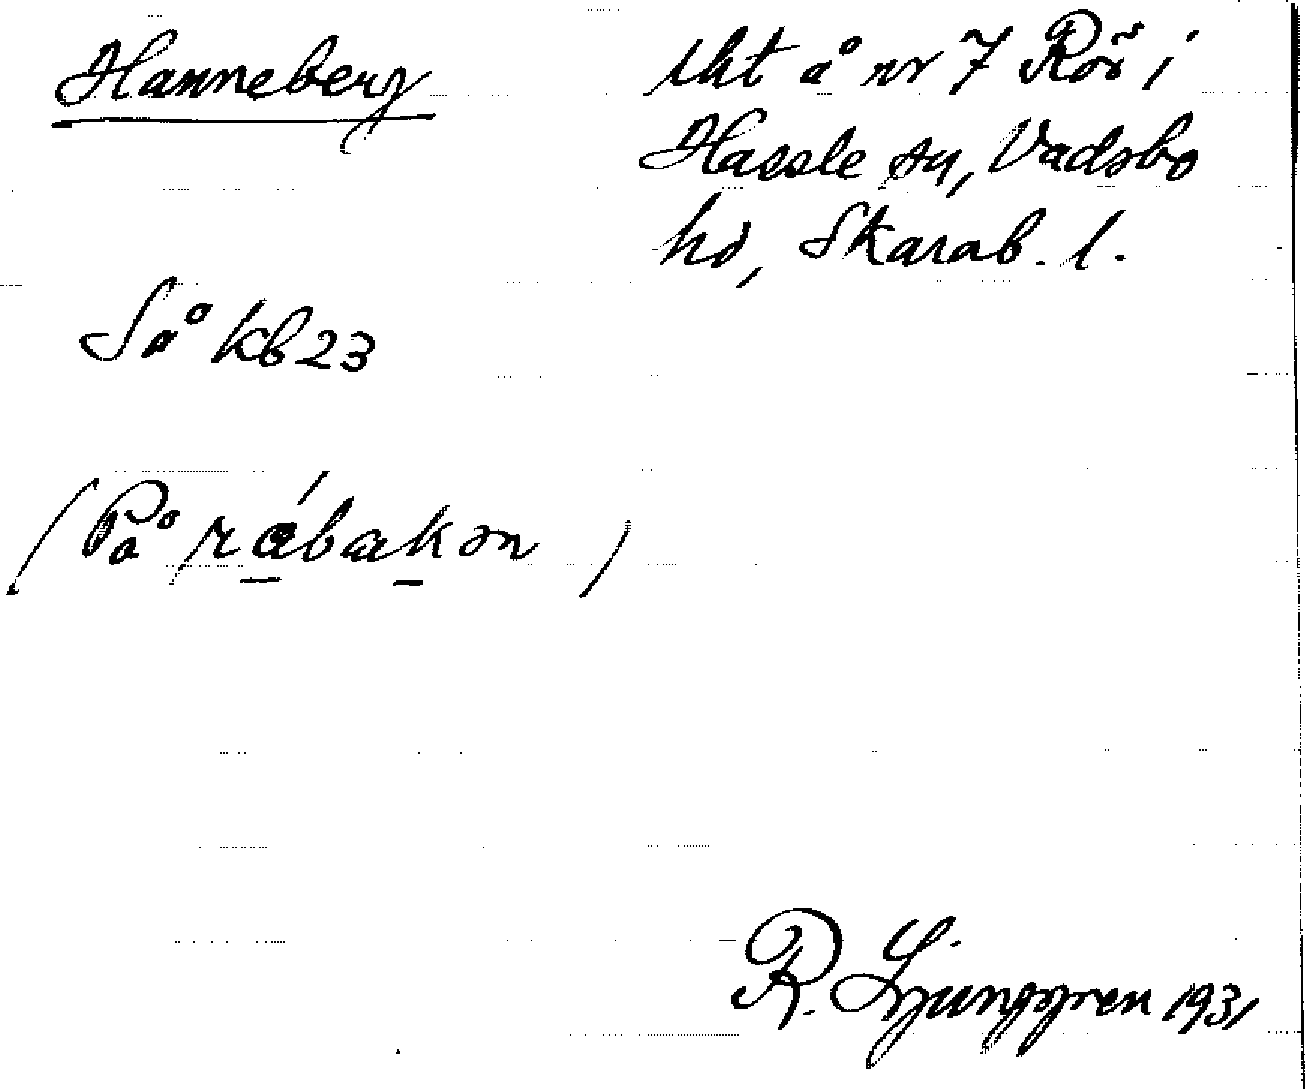 Hanneberg
lht å nr 7 Rör i
Hassle sn, Vadsbo
hd, Skarab. l.
Så kb 23
(På rábakən)
R. Ljunggren 1931